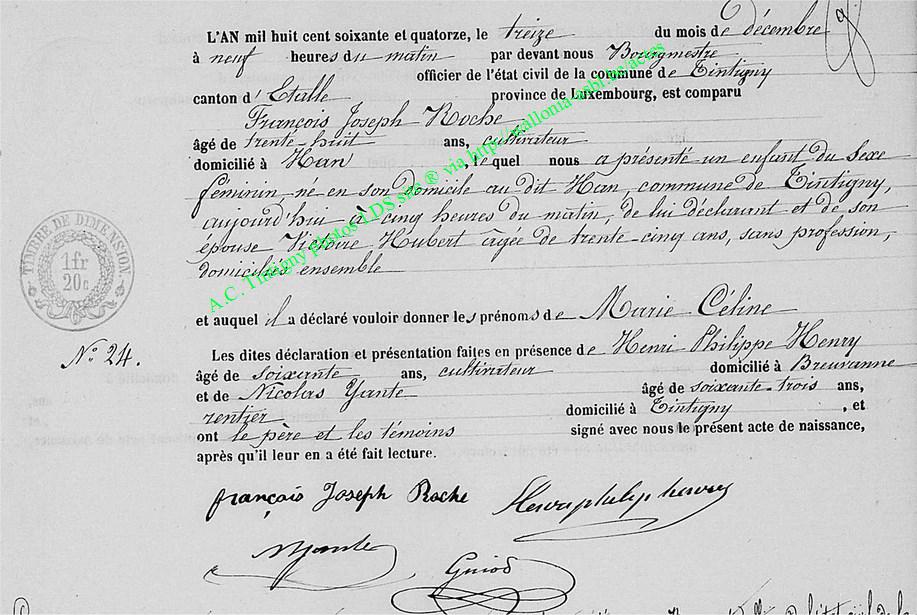 L'AN mil huit cent soixante et quatorze, le treize du mois de décembre
à neuf heures du matin par devant nous Bourgmestre
officier de l'état civil de la commune de Tintigny
canton d'Etalle province de Luxembourg, est comparu
François Joseph Roche
âgé de trente huit ans, cultivateur
domicilié à Han, lequel nous a présenté un enfant du sexe
féminin, né en son domicile au dit Han, commune de Tintigny,
aujourd'hui à cinq heures du matin, de lui déclarant et de son
épouse Victoire Hubert âgée de trente-cinq ans, sans profession,
domiciliés ensemble
TIMBRE DE DIMENSION.
1fr
20c
et auquel il a déclaré vouloir donner les prénoms de Marie Céline
No 24.
Les dites déclaration et présentation faites en présence de Henri Philippe Henry
âgé de soixante ans, cultivateur domicilié à Breuvanne
et de Nicolas Yante âgé de soixante-trois ans,
rentier domicilié à Tintigny, et
ont le père et les témoins signé avec nous le présent acte de naissance,
après qu'il leur en a été fait lecture.
françois Joseph Roche
NYante
A.C. Tintigny photos LDS site ® via http://mallonia-asbl.be/actes